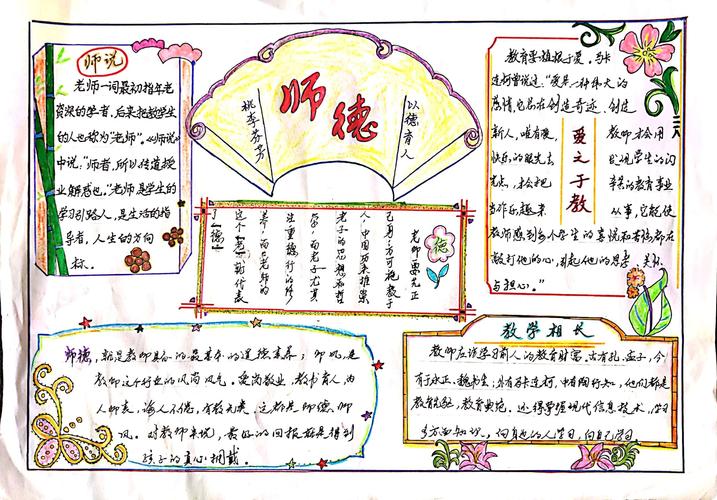 师说
老师一词最初指年老
资深的学者，后来把教学生
的人也称为“老师”。《师说》
中说：“师者，所以传道授
业解惑也。”老师是学生的
学习引路人，是生活的指
导者，人生的方向
标。
师德
桃李芬芳
以德育人
德
老师要先正
己身，方可说教于
人，中国历来推崇
老子的思想和哲
学，而老子尤其
注重德行的修
养，而老师的
这个
了《德》
教育要植根于爱。马卡
连柯曾说过：“爱是一种伟大的
感情，它总在创造奇迹，创造
新人，唯有爱，
教师才会用
快乐的眼光去
发现学生的闪
光点，才会把
辛苦的教育事业
当作乐趣来
从事，它能使
教师感到每个学生的喜悦和苦恼都在
敲打他的心，引起他的思考、关怀
与担心。”
爱之于教
师德，就是教师具备的最基本的道德素养；师风，是
教师这个行业的风尚风气。爱岗敬业，教书育人，为
人师表，诲人不倦，有教无类，这都是师德、师
风。对教师来说，最好的回报就是得到
孩子的真心拥戴。
教学相长
教师应该学习前人的教育财富，古有孔、孟子，今
有于永正、魏书生，外有马卡连柯，中有陶行知，他们都是
教育先驱，教育典范。还得掌握现代信息技术，学习
多方面知识。向身边的人学习，向自己学习